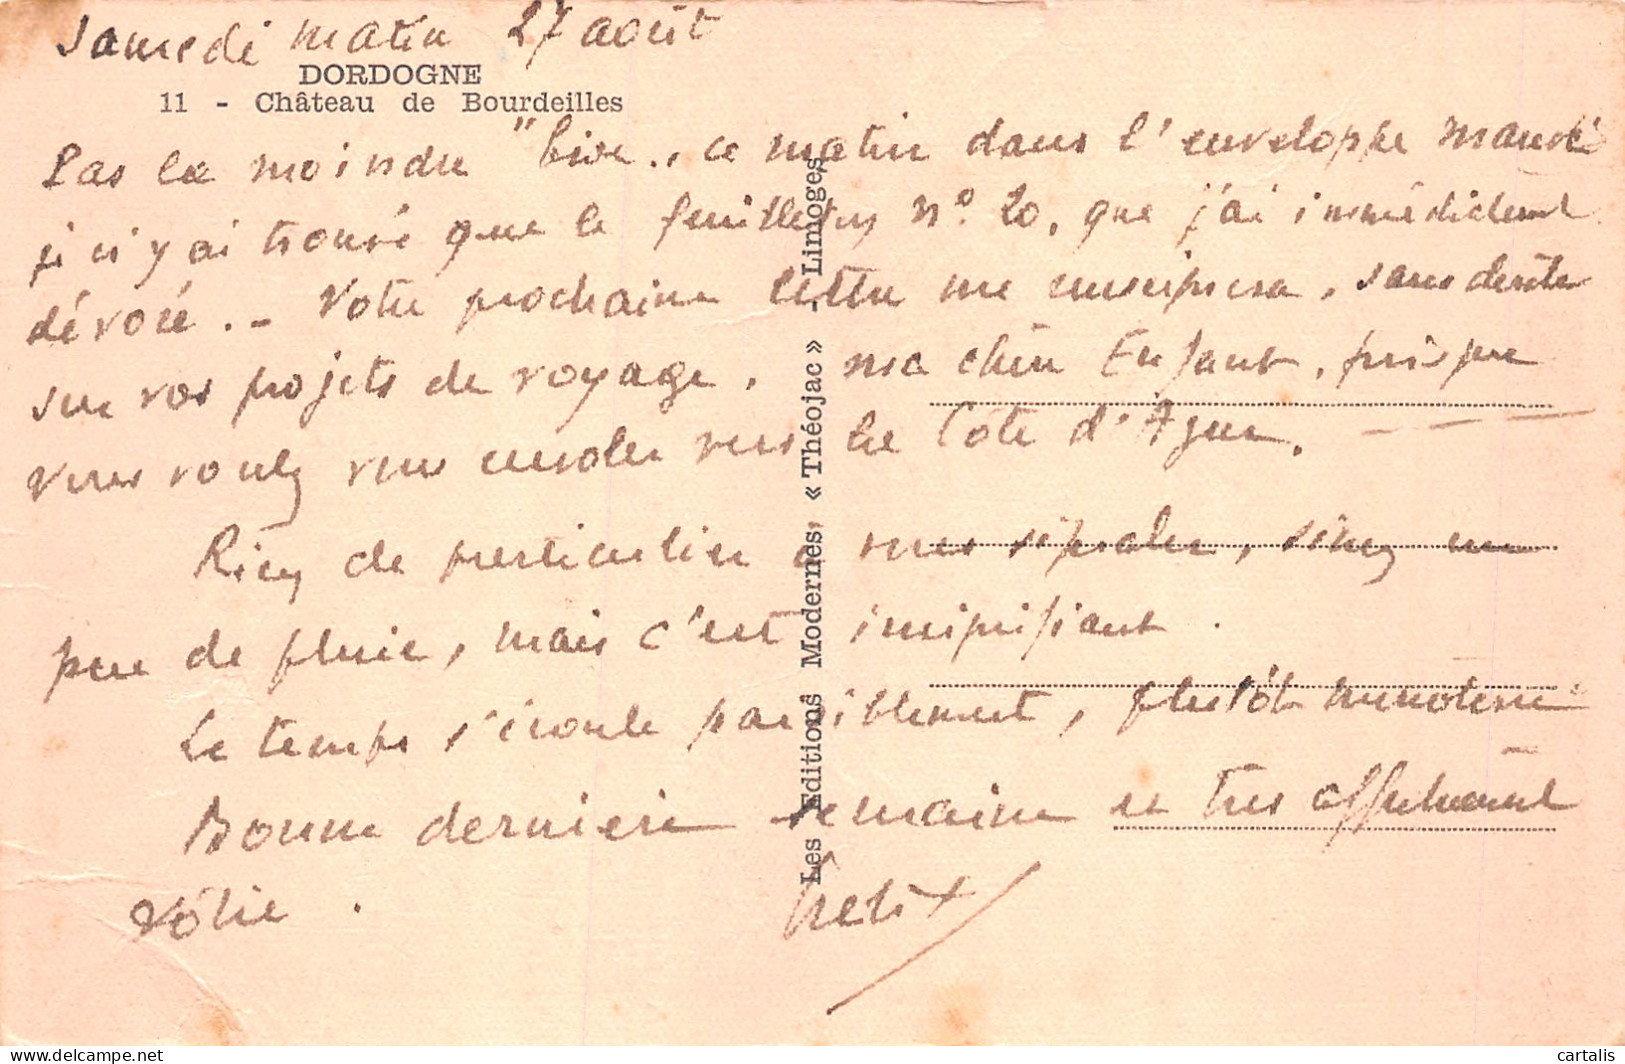 Samedi matin 27 août
DORDOGNE
11 - Château de Bourdeilles
Pas le moindre "bise", ce matin dans l'enveloppe mauve
je n'y ai trouvé que le feuilleton N° 20, que j'ai immédiatement
dévoré. - Votre prochaine lettre me renseignera, sans doute
sur vos projets de voyage, ma chère Enfant, puisque
vous voulez vous envoler vers la Côte d'Azur.
Rien de particulier à vous signaler, sinon un
peu de pluie, mais c'est insignifiant.
Le temps s'écoule paisiblement, plutôt
Bonne dernière semaine et très affectueusement
vôtre.
Les Editions Modernes « Théojac » - Limoges
cartalis